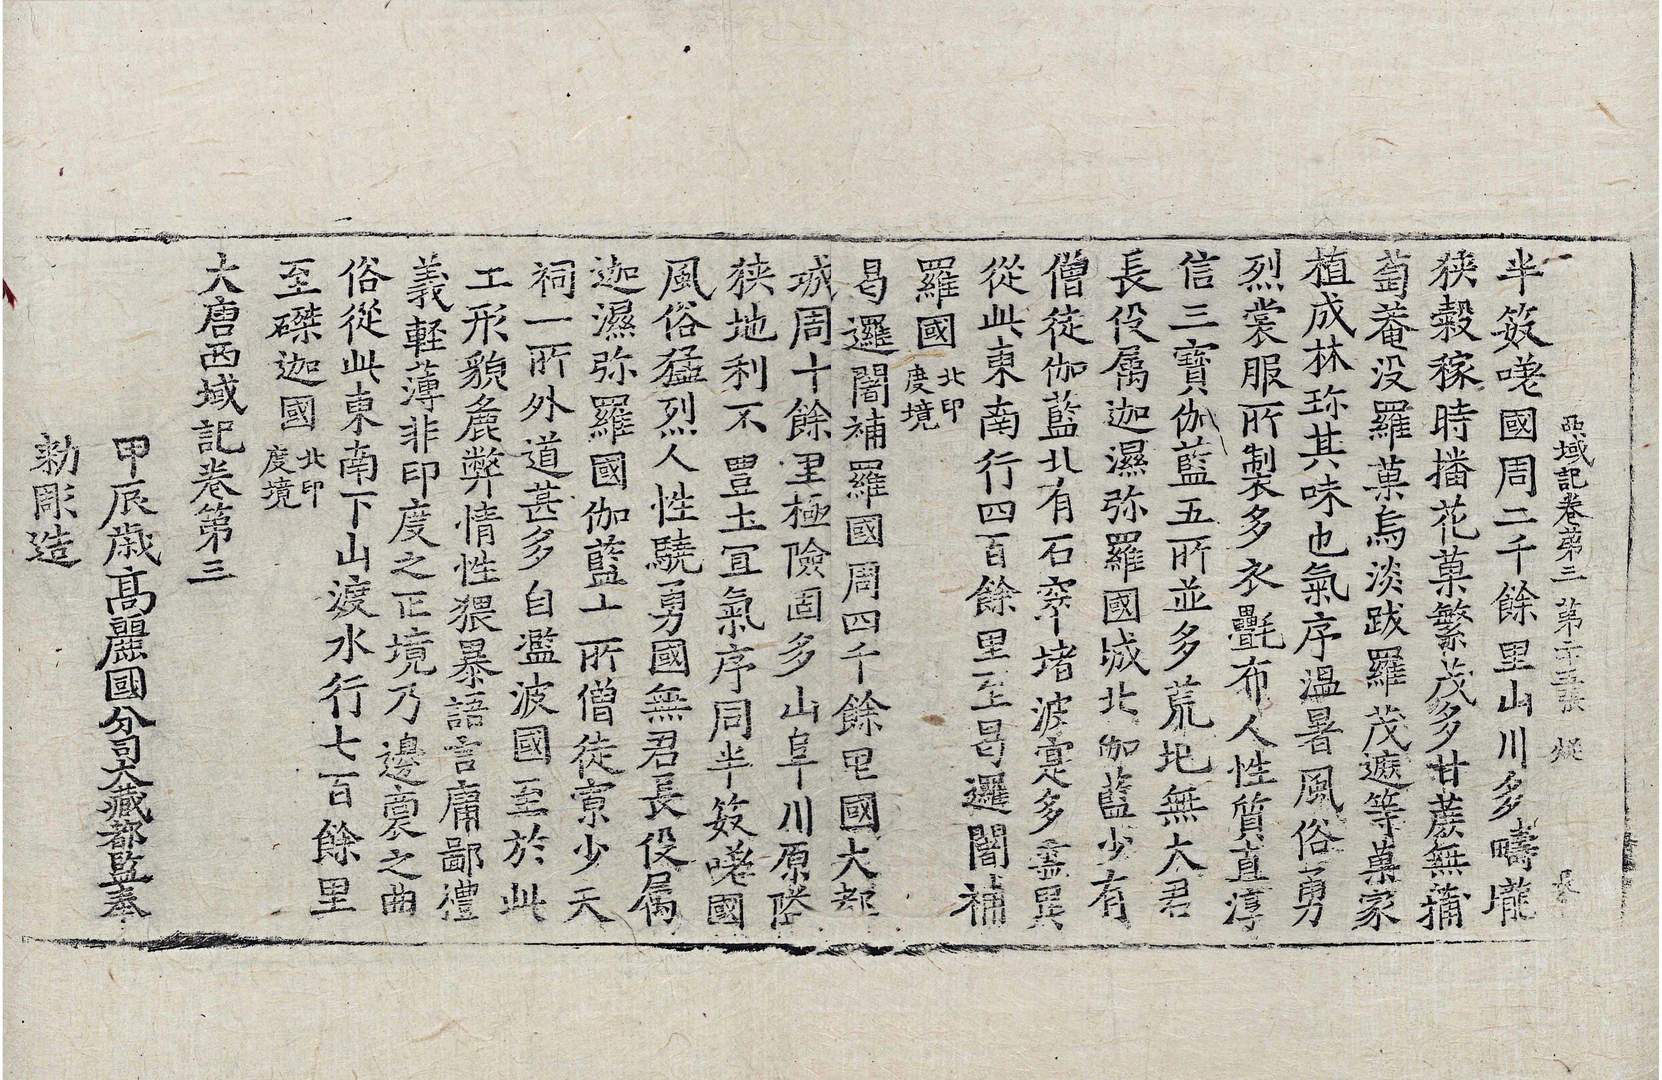 西域記卷第三 第二十五張
半笯嗟國周二千餘里山川多疇壠
狹穀稼時播花菓繁茂多甘蔗無蒲
萄菴没羅菓烏淡跋羅茂遮等菓家
植成林珎其味也氣序溫暑風俗勇
烈裳服所製多衣㲲布人性質直淳
信三寶伽藍五所並多荒圮無大君
長伇属迦濕弥羅國城北伽藍少有
僧徒伽藍北有石窣堵波寔多靈異
從此東南行四百餘里至曷邏闍補
羅國 北印度境
曷邏闍補羅國周四千餘里國大都
城周十餘里極險固多山阜川原隘
狹地利不豊土宜氣序同半笯嗟國
風俗猛烈人性驍勇國無君長伇属
迦濕弥羅國伽藍十所僧徒寡少天
祠一所外道甚多自濫波國至於此
土形貌麁弊情性猥暴語言庸鄙禮
義軽薄非印度之正境乃邊裔之曲
俗從此東南下山渡水行七百餘里
至磔迦國 北印度境
大唐西域記卷第三
甲辰歳高麗國分司大藏都監奉
勑彫造